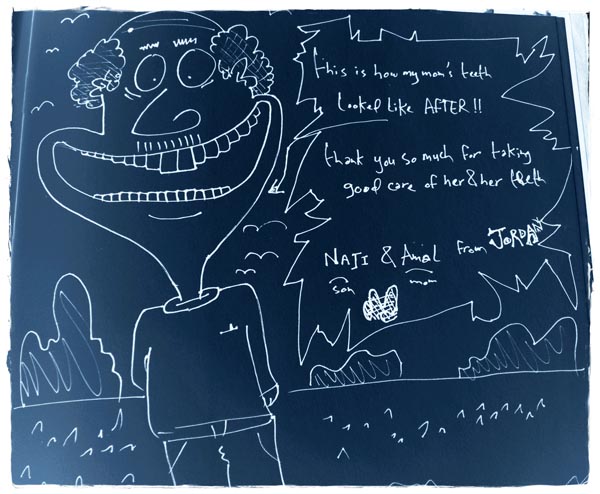 this is how my mom's teeth
Looked like AFTER!!
thank you so much for taking
good care of her & her teeth
NAJI & Amal from JORDAN
son mom